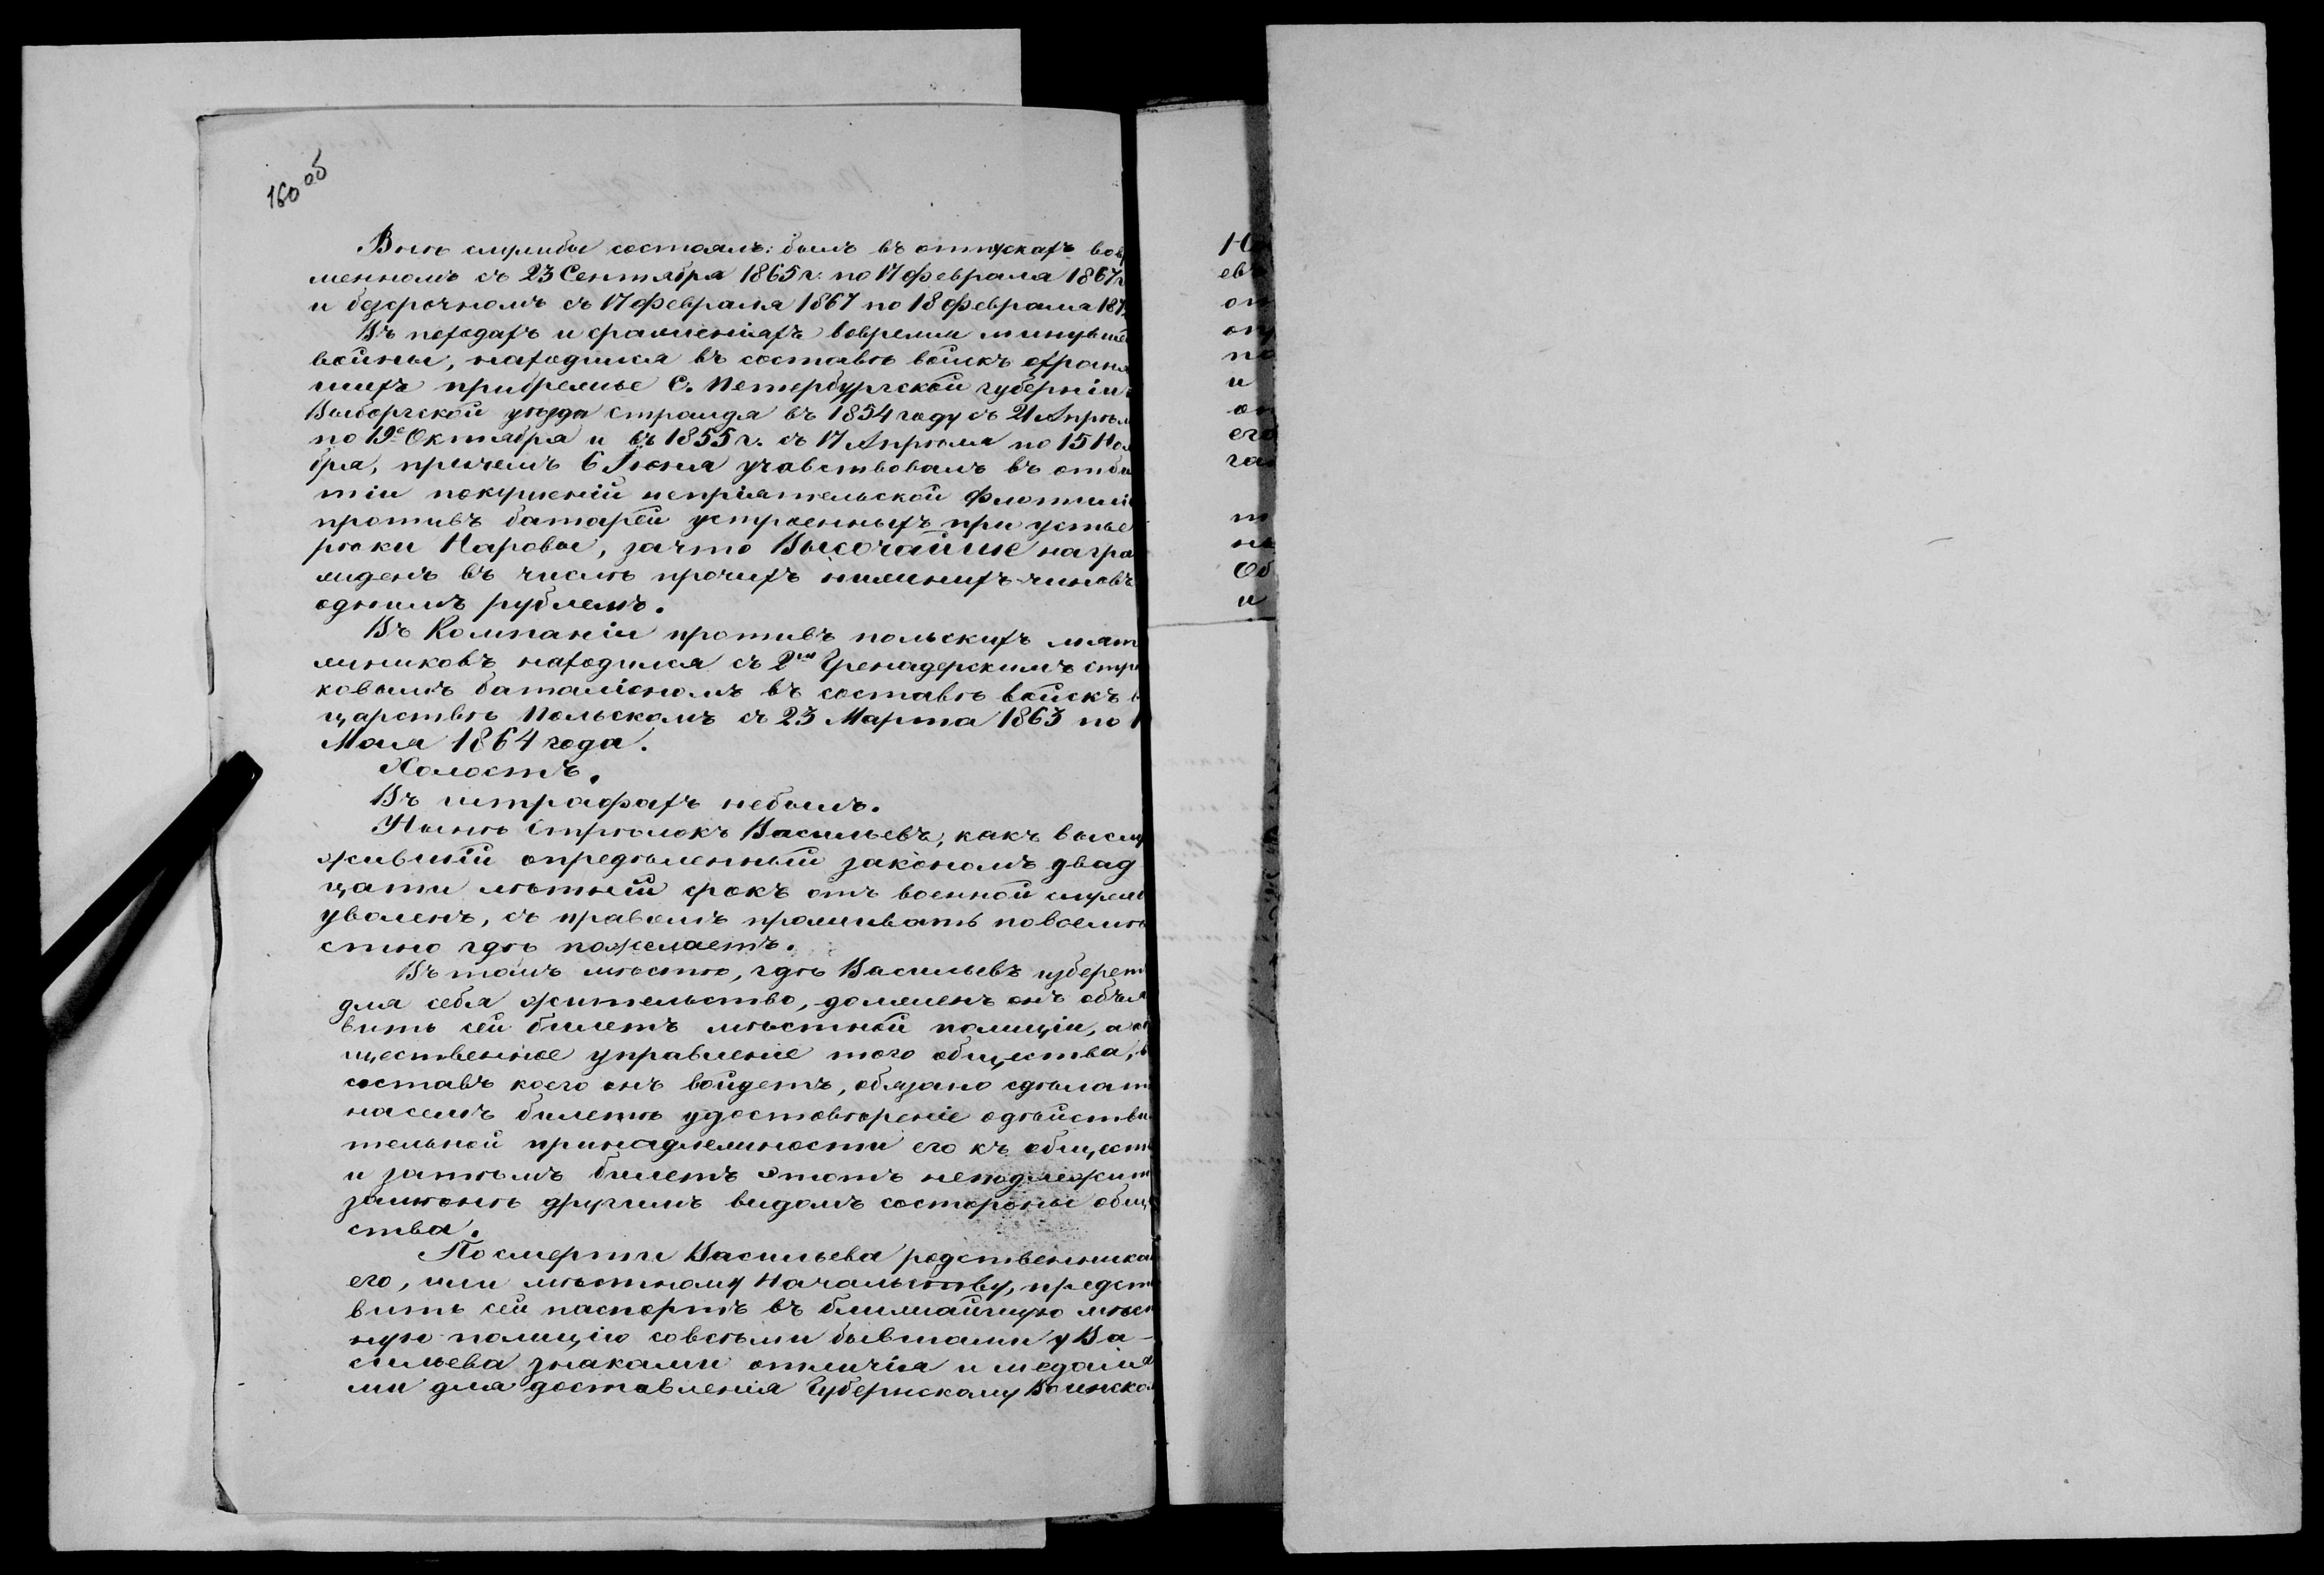 160 об
Внѣ службы состоялъ: былъ въ отпускахъ вовр
менномъ съ 23 Сентября 1865 г. по 17 Февраля 1867 г
и безсрочномъ съ 17 Февраля 1867 по 18 Февраля 187
Въ походахъ и сраженіяхъ вовремя минувше
войны, находился въ составѣ войскъ охраня
шихъ прибрежье С. Петербургской губерніи
Выборгской уѣзда странда въ 1854 году съ 21 Апрѣл
по 19е Октября и въ 1855 г. съ 17 Апрѣля по 15 Ноя
бря, причемъ 6 Іюня учавствовалъ въ отби
тіи покушеній непріятельской Флотиліи
противъ батарей устроенныхъ при устье
рѣки Наровы, зачто Высочайше награ
жденъ въ числѣ прочихъ нижнихъ чиновъ
однимъ рублемъ.
Въ Компаніи противъ польскихъ мят
жниковъ находился съ 2мъ Гренадерскимъ стрѣ
ковымъ баталіономъ въ составѣ войскъ в
царствѣ Польскомъ съ 23 Марта 1863 по 1
Мая 1864 года.
Холостъ.
Въ штрафахъ небылъ.
Нынѣ Стрѣлокъ Васильевъ, какъ выслу
жившій опредѣленный закономъ двад
цати лѣтній срокъ отъ военной служб
уволенъ, съ правомъ проживать повсемѣ
стно гдѣ пожелаетъ.
Въ томъ мѣстѣ, гдѣ Васильевъ избереть
для себя жительство, долженъ онъ объя
вить сей билетъ мѣстной полиціи, а об
щественное управленіе того общества, в
составъ коего онъ войдетъ, обязано сдѣлать
насемъ билетѣ удостовѣреніе одѣйстви
тельной принадлежности его къ общест
и затѣмъ билетъ этотъ неподлежит
замѣнѣ другимъ видомъ состороны обще
ства.
По смерти Васильева родственника
его, или мѣстному Начальству, предст
вить сей паспортъ въ ближайшую мѣст
ную полицію совсѣми бывшими у Ва-
сильева знаками отличія и медаля
ми для доставленія Губернскому Воинско
Но
евъ
от
оп
по
и
от
его
га
т
нь
Об
и